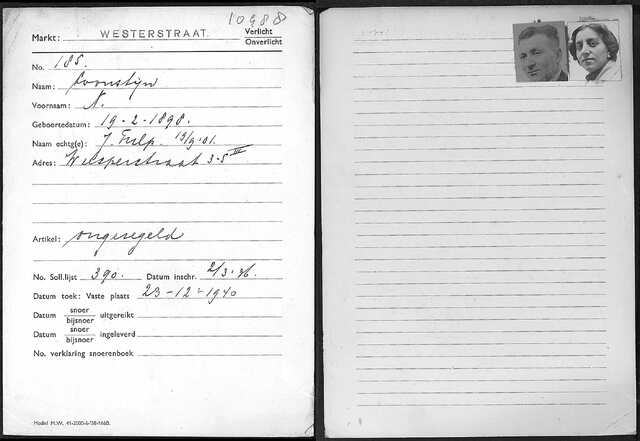 10988
Markt: WESTERSTRAAT. Verlicht
Onverlicht
No. 185.
Naam: Coonstijn
Voornaam: N.
Geboortedatum: 19-2-1898.
Naam echtg(e): J. Tulp. 13/9.01.
Adres: Weesperstraat 3-5 III
Artikel: ongeregeld
No. Soll.lijst 390. Datum inschr. 2/3.36.
Datum toek: Vaste plaats 23-12-1940
Datum snoer
bijsnoer uitgereikt
Datum snoer
bijsnoer ingeleverd
No. verklaring snoerenboek
Model M.W. 41-2000-6-'38-1660.